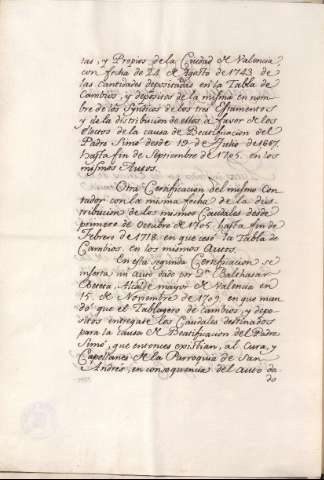 tas, y Propios de la Ciudad de Valencia
con fecha de 24 de Agosto de 1743. de
las cantidades depositadas en la Tabla de
Cambios, y depositos de la misma en nom-
bre de los Sindicos de los tres Estamentos
y de la distribucion de ellos a favor de los
Electos de la causa de Beatificacion del
Padre Simó desde 19 de Julio de 1687.
hasta fin de Septiembre de 1705. en los
mismos Autos.
Otra Certificacion del mismo Con-
tador con la misma fecha de la dis-
tribucion de los mismos Caudales desde
primero de Octubre de 1705. hasta fin de
Febrero de 1718. en que cesó la Tabla de
Cambios. en los mismos Autos.
En esta segunda Certificacion se
inserta un auto dado por Dn. Balthasar
Alcalde mayor de Valencia en
15. de Noviembre de 1709. en que man-
dó que el Tablagero de Cambios, y depo-
sitos entregase los Caudales destinados
para la causa de Beatificacion del Padre
Simó, que entonces existian, al Cura, y
Capellanes de la Parroquia de San
Andrés, en consequencia del auto da-
do